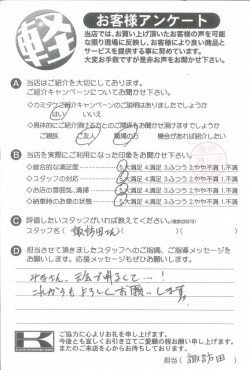 軽
お客様アンケート
当店では、お買い上げ頂いたお客様の声を可能
な限り現場に反映し、お客様により良い商品と
サービスを提供する事に努めています。
大変お手数ですが是非お声をお聞かせ下さい。
A 当店はご紹介を大切にしております。
ご紹介キャンペーンについてお聞かせ下さい
◇カミタなご紹介キャンペーンのご説明はありましたでしょうか
はい いいえ
◇具体的にご紹介頂けるお方のご関係をお聞かせ頂けますでしょうか
ご親族 ご友人 職場の方 機会があれば紹介したい
B 当店を実際にご利用になった印象をお聞かせ下さい。
◇総合的な満足度 5.大満足 4.満足 3.ふつう 2.やや不満 1.不満
◇スタッフの対応 5.大満足 4.満足 3.ふつう 2.やや不満 1.不満
◇お店の雰囲気、清掃 5.大満足 4.満足 3.ふつう 2.やや不満 1.不満
◇納車時のお車の状態 5.大満足 4.満足 3.ふつう 2.やや不満 1.不満
C 評価したいスタッフがいれば教えてください。(複数回答可)
スタッフ名( 諏訪田さん )( )
D 担当させて頂きましたスタッフへのご指摘、ご指導メッセージを
お願いします。応援メッセージもぜひお願いします。
これからもよろしくお願いします
K
ご協力に心よりお礼を申し上げます。
今後とも宜しくお引き立てご愛顧の程お願い申し上げます。
またのご来店を心からお待ちしております。
担当( 諏訪田 )